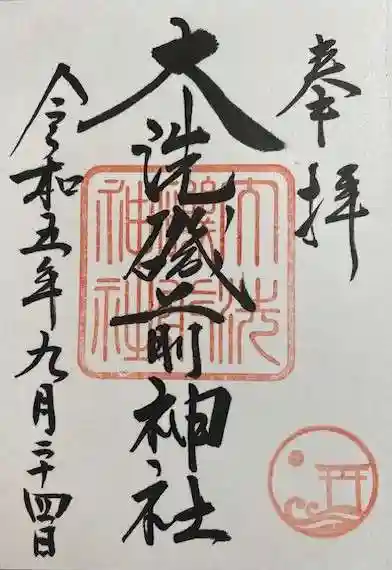 奉拝
大洗磯前神社
令和五年九月二十四日
大洗磯前神社